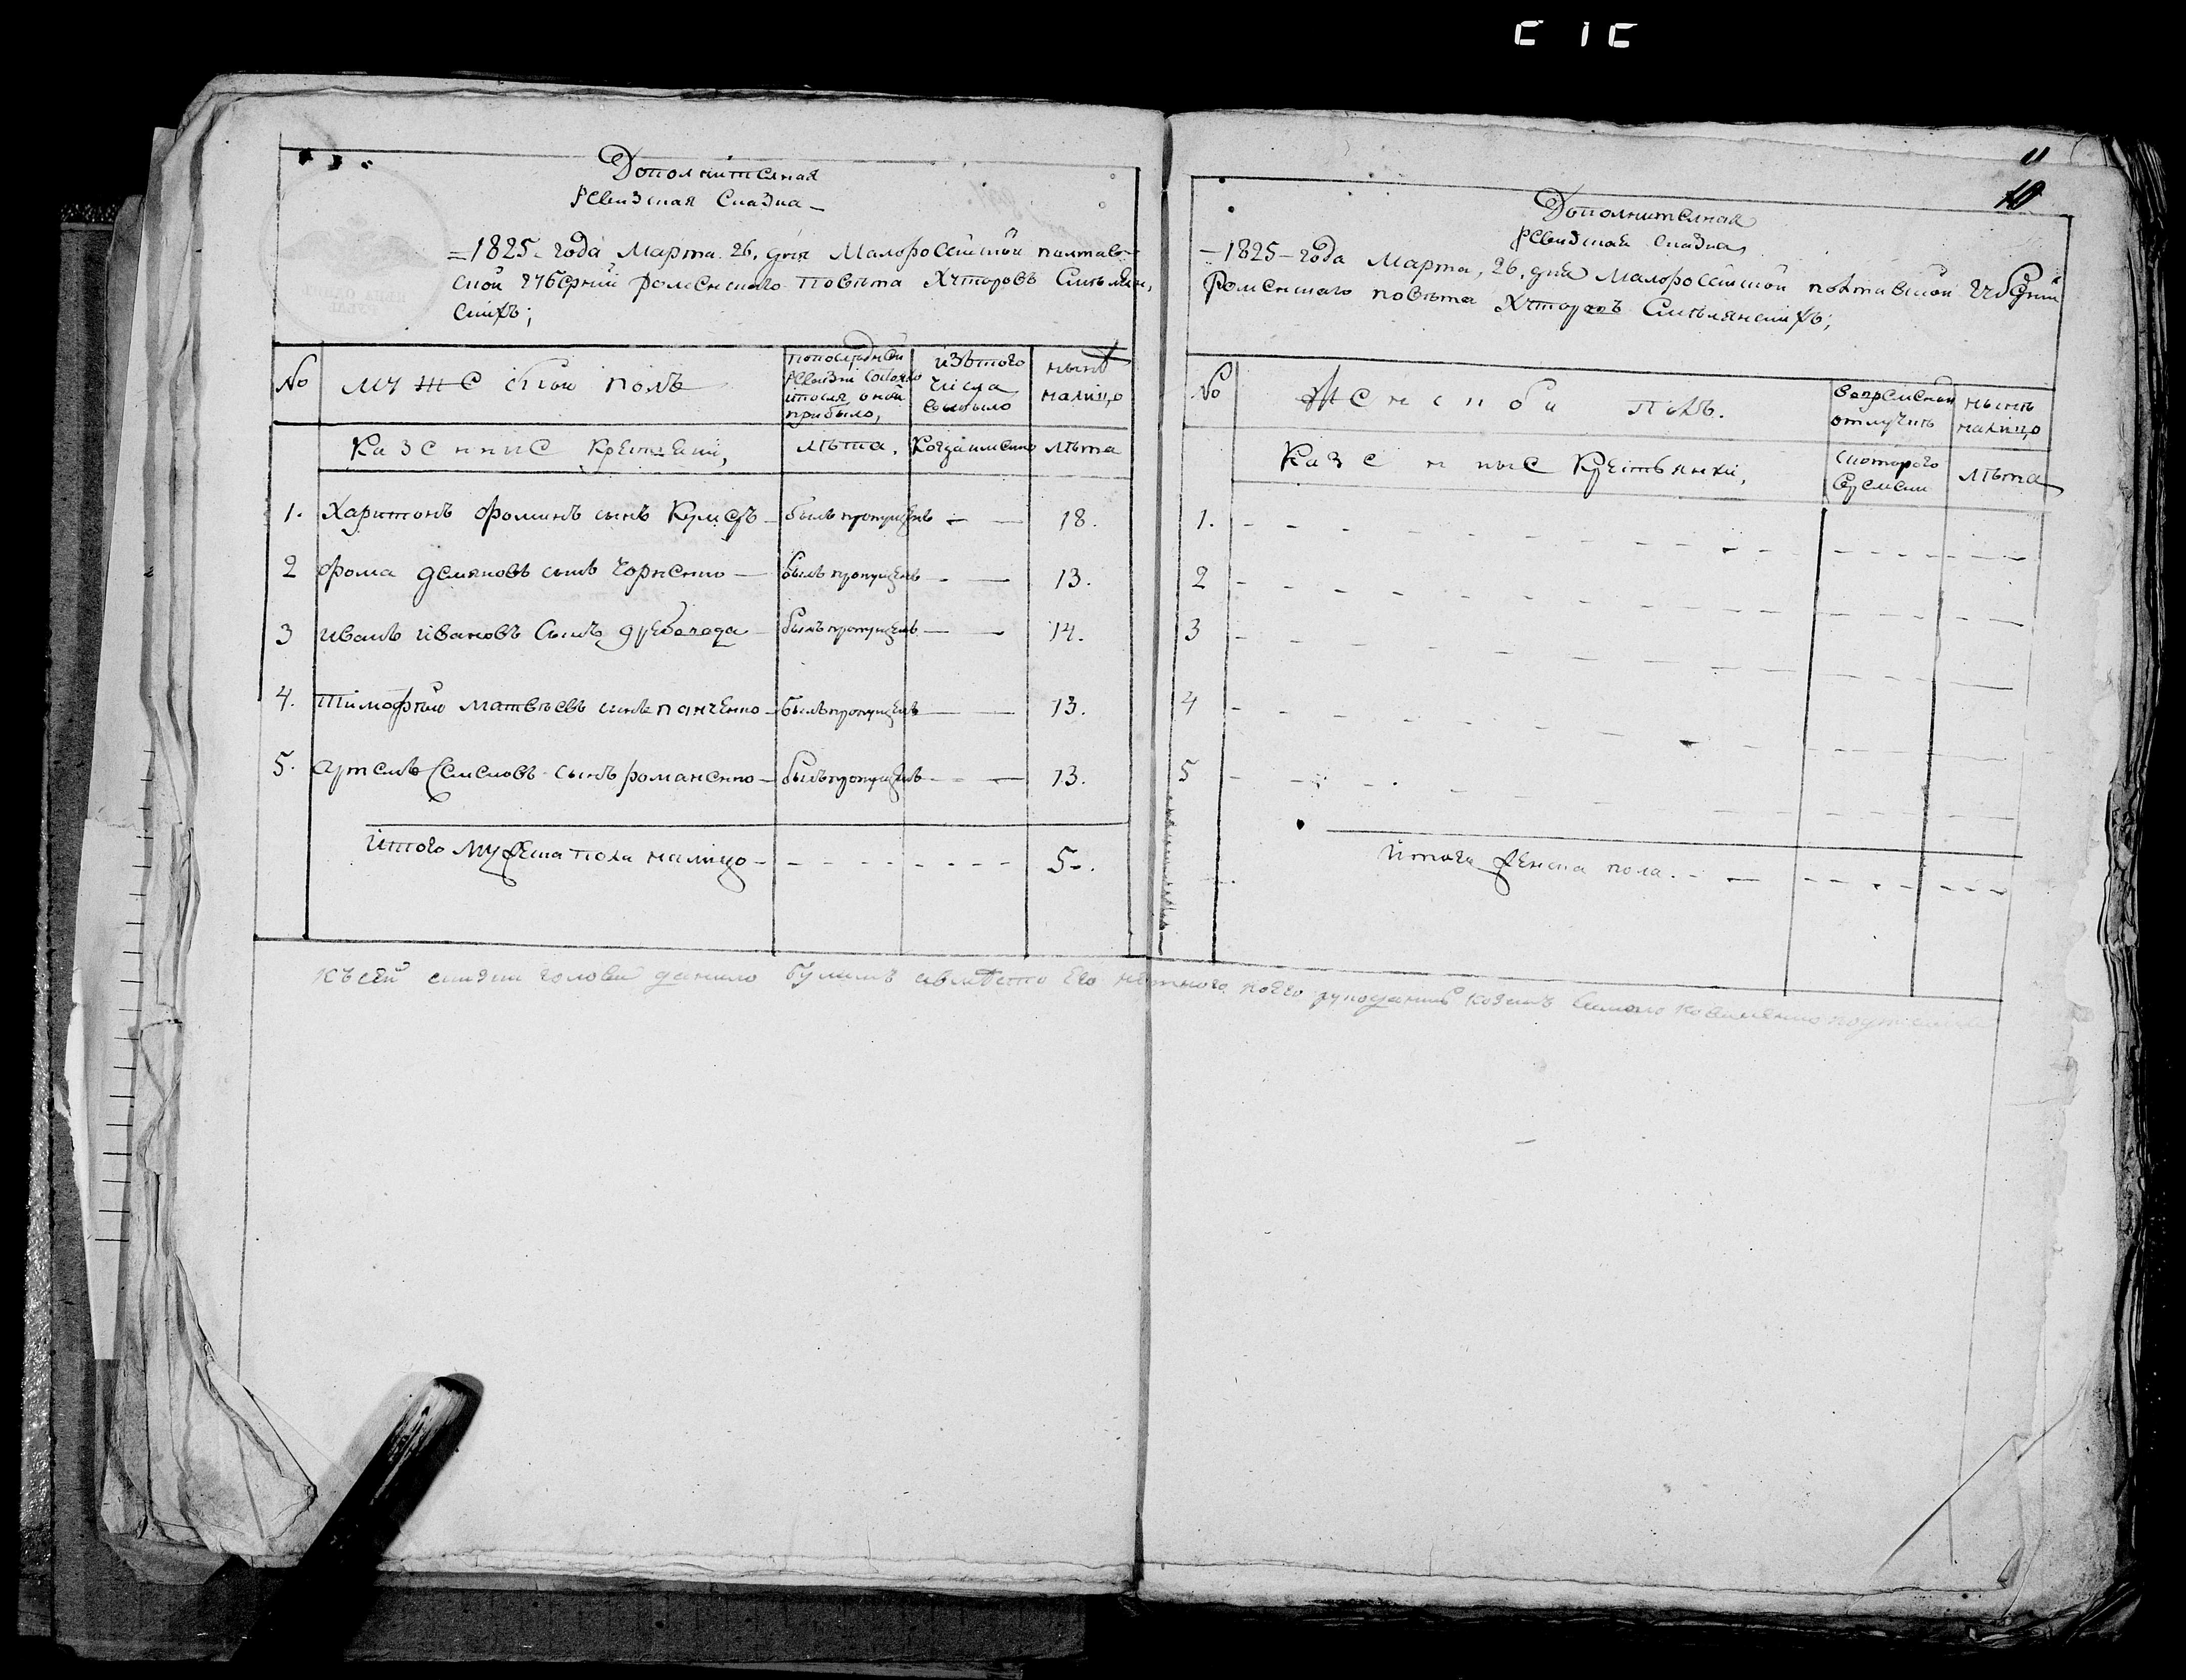 Дополнителная
ревизская сказка
1825 года Марта 26, дня Малороссийской полтав-
ской губернии роменского повета Хуторовъ
№ мужеский полъ
по последней ревизии состояло и после оной прибыло,
изъ того числа выбыло
ныне на лицо
Казенние крестяни,
лета,
Когда именно
лета
1. Харитонъ фоминъ сынъ былъ пропущенъ — — 18.
2 фома демяновъ сынъ Чорненко — былъ пропущенъ - — 13.
3 иванъ ивановъ сынъ — былъ пропущенъ — — 14.
4. Тимофей матвеевъ сынъ панченко - былъ пропущенъ — — 13.
5. артемъ семеновъ сынъ романенко - былъ пропущенъ - — 13.
итого мужеска пола налицо - - - - - - - - 5.
11
10
Дополнителная
ревизская сказка,
1825 года Марта, 26, дня Малороссийской полтавской губернии
Роменскаго повета Хуторовъ
№ Женской полъ.
во временной отлучке
ныне налицо
Казенные Крестьянки,
с котораго времени
лета
1.
2
3
4
5
итого женска пола.
къ сей сказки голова данило